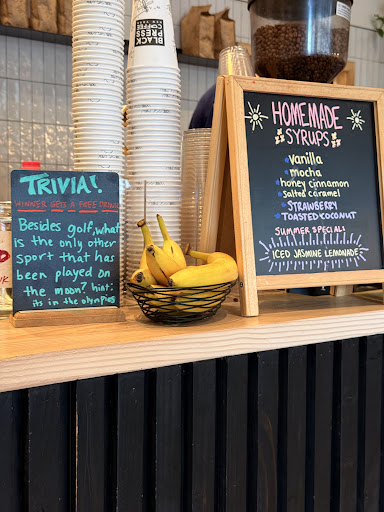 BLACK
PRESS
COFFEE
TRIVIA!
WINNER GETS A FREE DRINK
Besides golf, what
is the only other
sport that has
been played on
the moon? hint:
its in the olympics
HOMEMADE
SYRUPS
vanilla
mocha
honey cinnamon
salted caramel
STRAWBERRY
TOASTED COCONUT
SUMMER SPECIAL!
ICED JASMINE LEMONADE